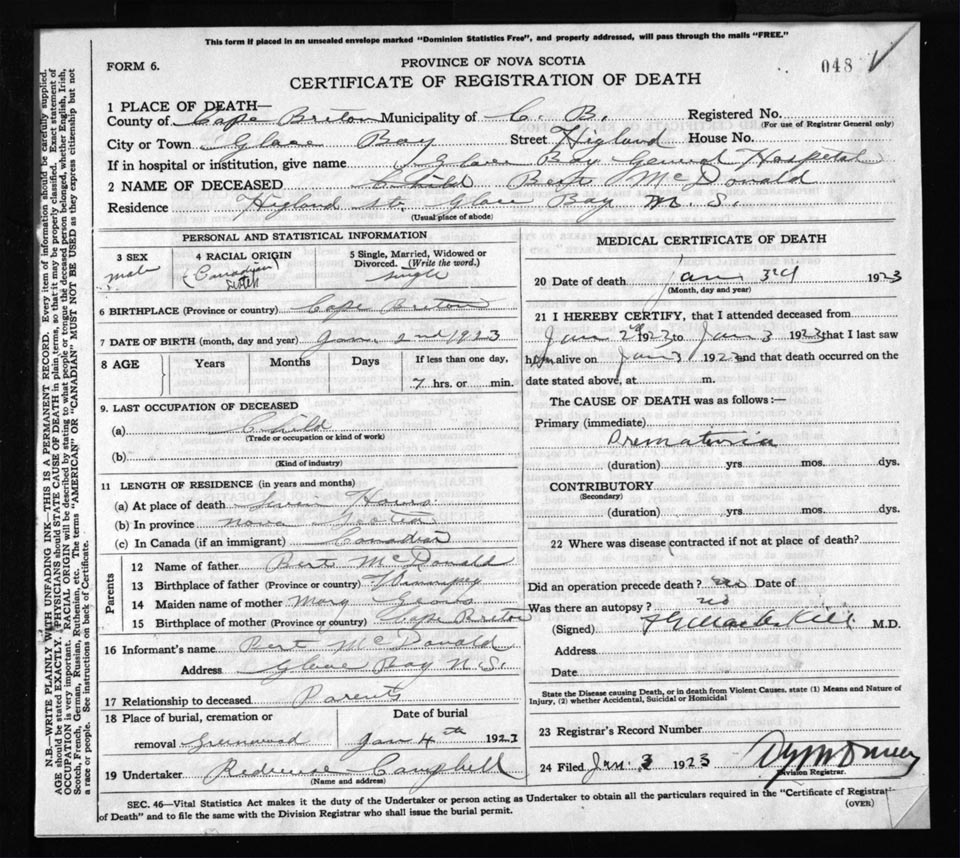 This form if placed in an unsealed envelope marked "Dominion Statistics Free", and properly addressed, will pass through the mails "FREE."
FORM 6.
PROVINCE OF NOVA SCOTIA
048
CERTIFICATE OF REGISTRATION OF DEATH
1 PLACE OF DEATH—
County of Cape Breton Municipality of C. B. Registered No.
(For use of Registrar General only)
City or Town Glace Bay Street Higland House No.
If in hospital or institution, give name Glace Bay General Hospital
2 NAME OF DECEASED Child Bert McDonald
Residence Higland St. Glace Bay N. S.
(Usual place of abode)
PERSONAL AND STATISTICAL INFORMATION
3 SEX male
4 RACIAL ORIGIN (Canadian)
5 Single, Married, Widowed or Divorced. (Write the word.) single
6 BIRTHPLACE (Province or country) Cape Breton
7 DATE OF BIRTH (month, day and year) Jan. 2nd 1923
8 AGE Years Months Days If less than one day,
7 hrs. or min.
9. LAST OCCUPATION OF DECEASED
(a) Child
(Trade or occupation or kind of work)
(b)
(Kind of industry)
11 LENGTH OF RESIDENCE (in years and months)
(a) At place of death Seven Hours
(b) In province Nova Scotia
(c) In Canada (if an immigrant) Canadian
Parents
12 Name of father Bert McDonald
13 Birthplace of father (Province or country) Winnipeg
14 Maiden name of mother Mary
15 Birthplace of mother (Province or country) Cape Breton
16 Informant's name Bert McDonald
Address Glace Bay N.S.
17 Relationship to deceased Parents
18 Place of burial, cremation or removal Greenwood
Date of burial Jan 4th 1923
19 Undertaker Campbell
(Name and address)
MEDICAL CERTIFICATE OF DEATH
20 Date of death Jan 3rd 1923
(Month, day and year)
21 I HEREBY CERTIFY, that I attended deceased from
Jan 2nd 1923 to Jan 3 1923 that I last saw
him alive on Jan 3 1923 and that death occurred on the
date stated above, at m.
The CAUSE OF DEATH was as follows :—
Primary (immediate)
Prematuria
(duration) yrs. mos. dys.
CONTRIBUTORY
(Secondary)
(duration) yrs. mos. dys.
22 Where was disease contracted if not at place of death?
Did an operation precede death? no Date of
Was there an autopsy? no
(Signed) M.D.
Address
Date
State the Disease causing Death, or in death from Violent Causes, state (1) Means and Nature of
Injury, (2) whether Accidental, Suicidal or Homicidal
23 Registrar's Record Number
24 Filed Jan 3 1923
Division Registrar.
SEC. 46—Vital Statistics Act makes it the duty of the Undertaker or person acting as Undertaker to obtain all the particulars required in the "Certificate of Registrati
of Death" and to file the same with the Division Registrar who shall issue the burial permit.
(OVER)
N.B.—WRITE PLAINLY WITH UNFADING INK—THIS IS A PERMANENT RECORD. Every item of information should be carefully supplied.
AGE should be stated EXACTLY. PHYSICIANS should STATE CAUSE OF DEATH in plain terms, so that it may be properly classified. Exact statement of
OCCUPATION is very important. RACIAL ORIGIN will be described by stating to what people or tongue the deceased person belonged, whether English, Irish,
Scotch, French, German, Russian, Ruthenian, etc. The terms "AMERICAN" OR "CANADIAN" MUST NOT BE USED as they express citizenship but not
a race or people. See instructions on back of Certificate.